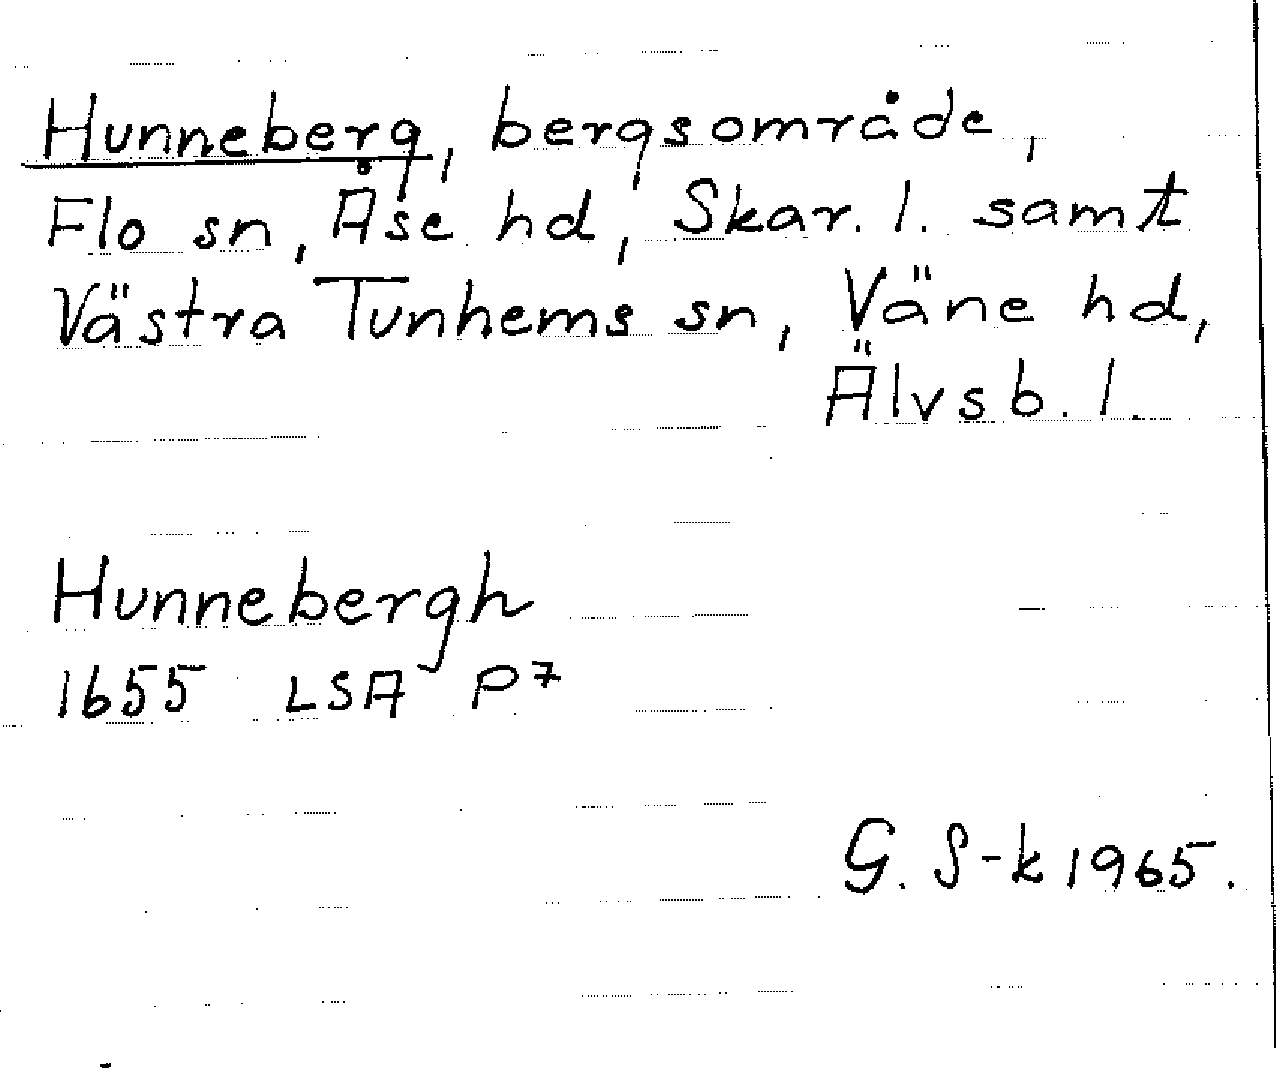 Hunneberg, bergsområde,
Flo sn, Åse hd, Skar. l. samt
Västra Tunhems sn, Väne hd,
Älvsb. l.
Hunnebergh
1655 LSA P7
G. S-k 1965.